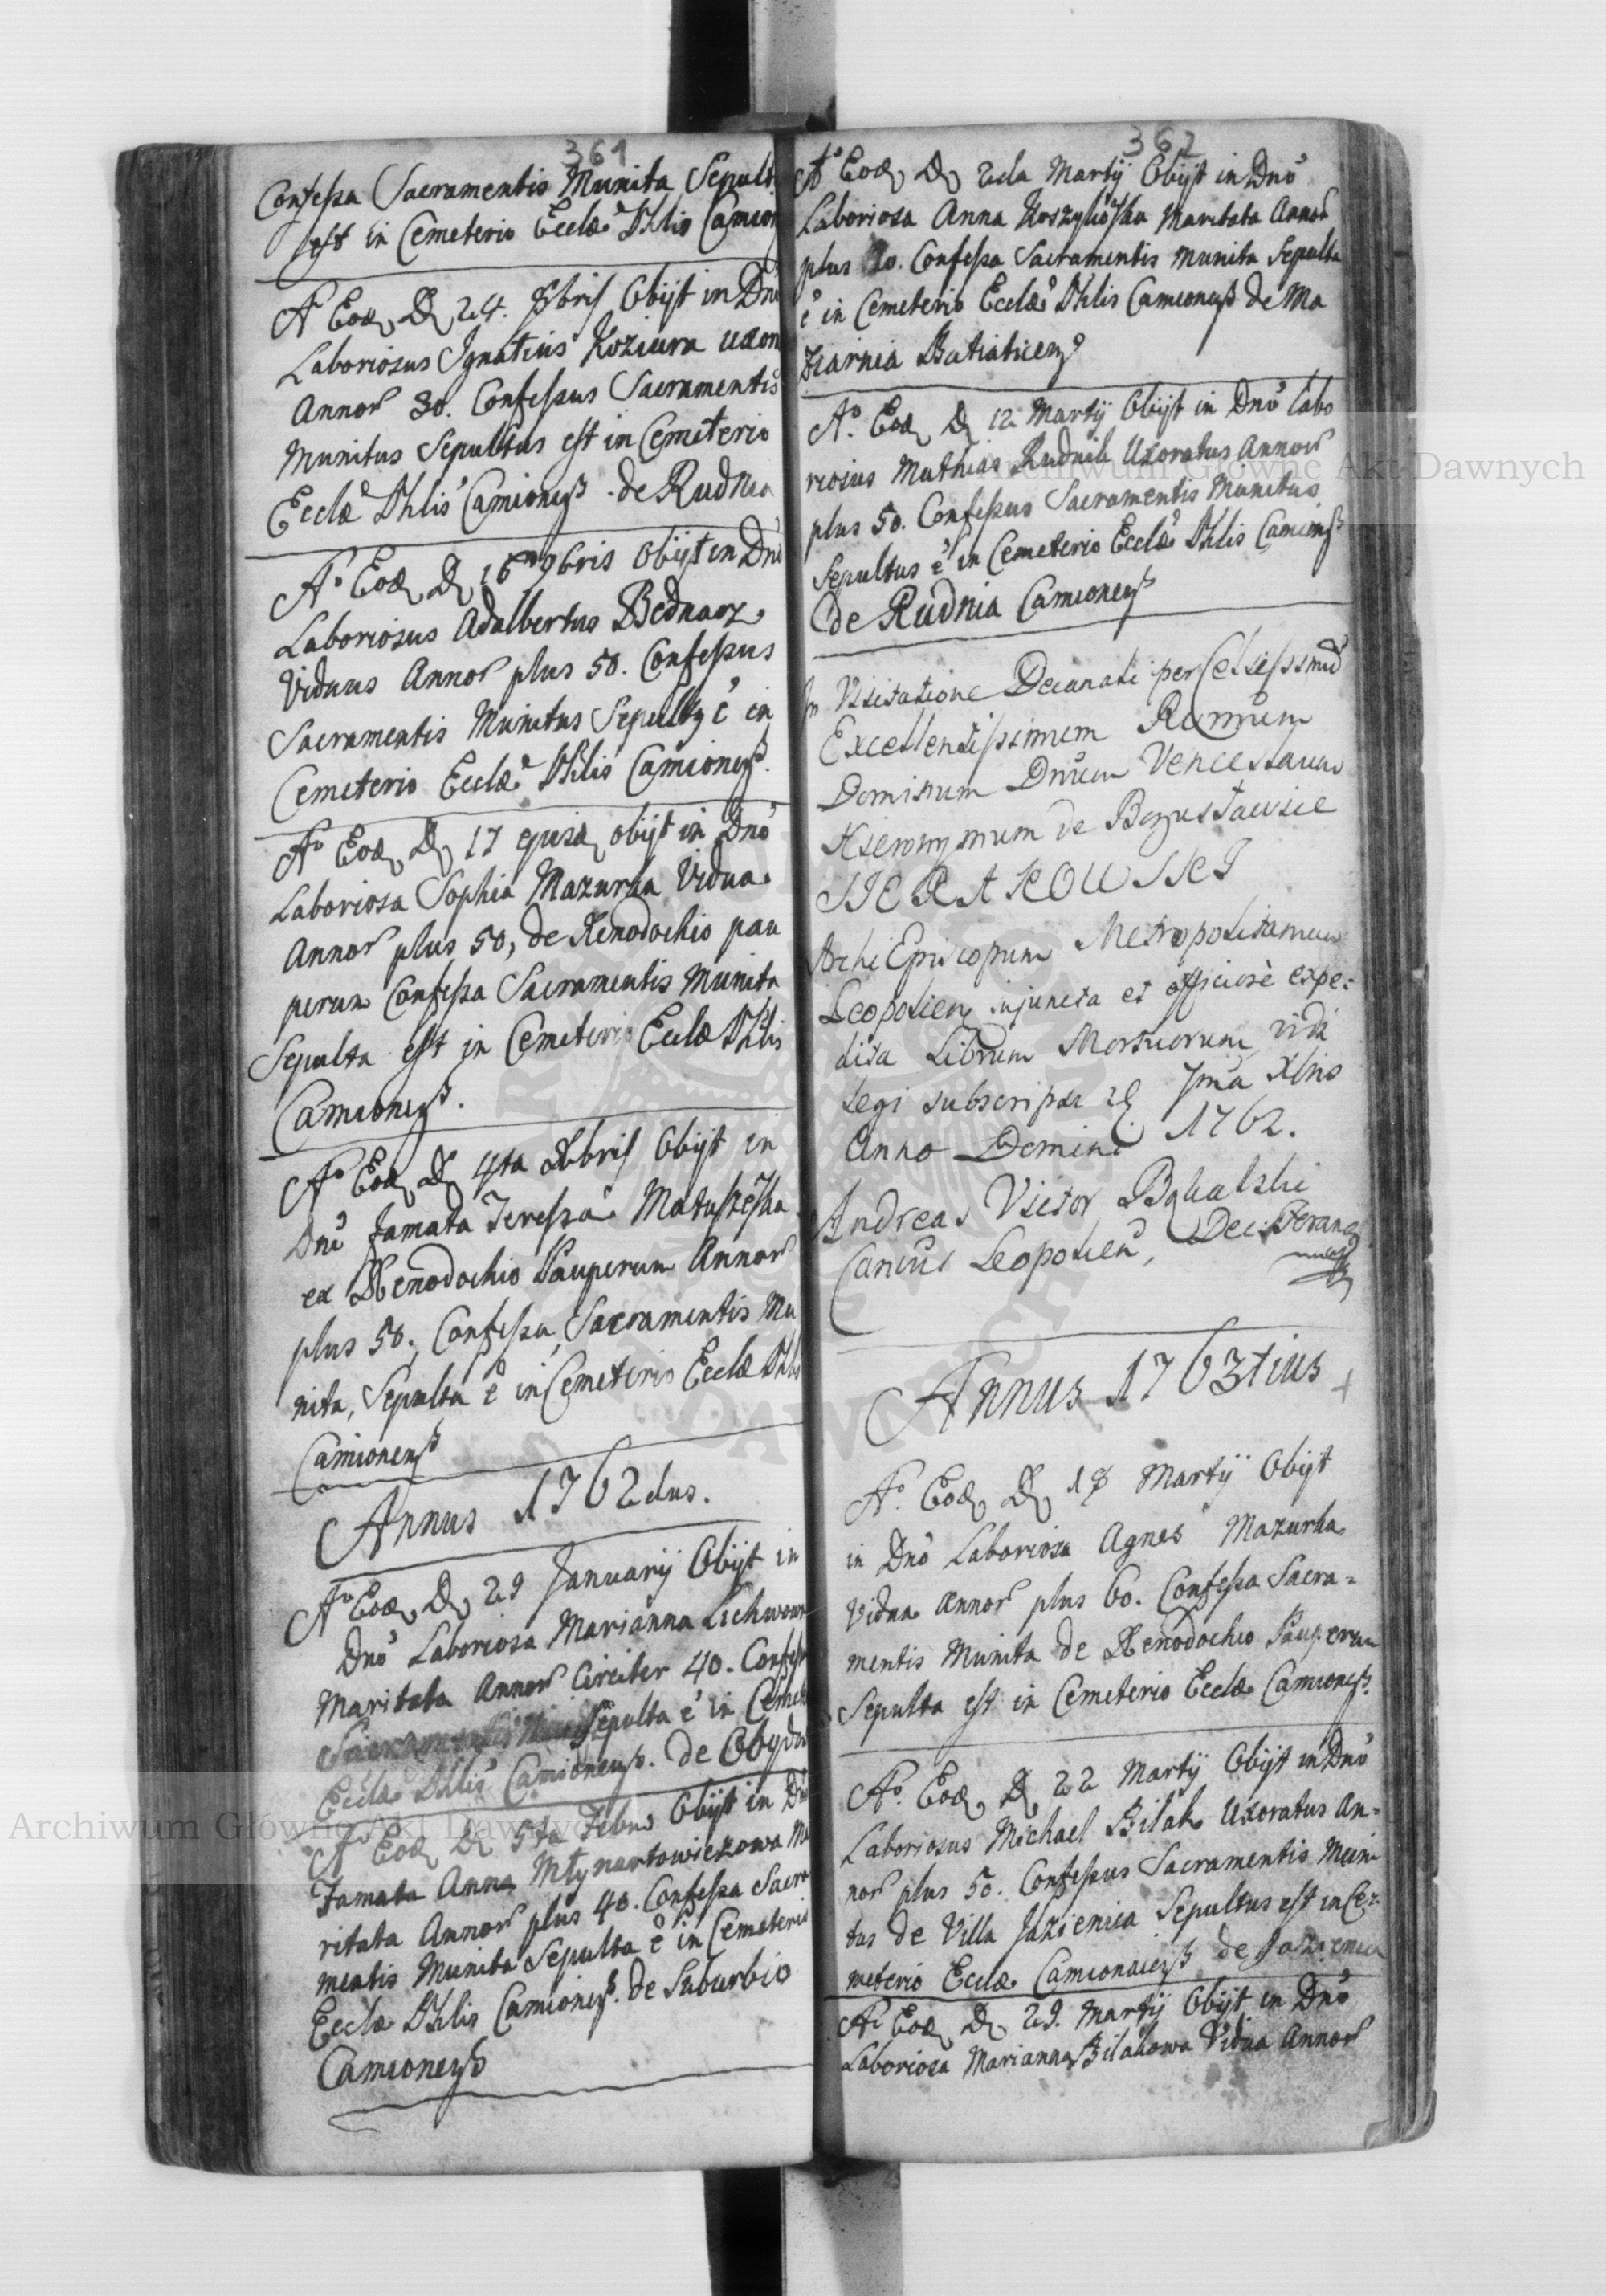 361
Confessa Sacramentis Munita Sepult
est in Cemeterio Ecclæ Phlis Camion
Aº Eod D 24. 8bris Obijt in Dno
Laboriosus Ignatius Koziura uxon
Annor 30. Confessus Sacramentis
Munitus Sepultus est in Cemeterio
Ecclæ Phlis Camionens. de Rudnia
Aº Eod D 16 9bris Obijt in Dno
Laboriosus Adalbertus Bednarz
Viduus Annor plus 50. Confessus
Sacramentis Munitus Sepultg ẽ in
Cemeterio Ecclæ Phlis Camionens.
Aº Eod D 17 ejusd obijt in Dno
Laboriosa Sophia Mazurka Vidua
Annor plus 50, de Xenodochio pau
perum Confessa Sacramentis Munita
Sepulta est in Cemeterio Ecclæ Phlis
Camionens.
Aº Eod D 4ta Xbris Obijt in
Dnõ famata Teressa
ex Xenodochio Pauperum Annor
plus 50, Confessa Sacramentis Mu
nita, Sepulta ẽ in Cemeterio Ecclæ Phlis
Camionens
Annus 1762dus.
Aº Eod D 29 Januarij Obijt in
Dnõ Laboriosa Marianna
Maritata Annor Circiter 40. Confess
Sacramentis Sepulta ẽ in Cemet
Ecclæ Phlis Camionens. de
Aº Eod D 5ta Febru Obijt in Dn
Famata Anna Młynartowiczowa Ma
ritata Annor plus 40. Confessa Sacra
mentis Munita Sepulta ẽ in Cemeterio
Ecclæ Phlis Camionens. de Suburbio
Camionens
362
Aº Eod D 2da Martij Obijt in Dnõ
Laboriosa Anna Maritata Annor
plus Confessa Sacramentis Munita Sepulta
ẽ in Cemeterio Ecclæ Phlis Camionens de Ma
ziarnia Batiaticen
Aº. Eod D 12 Martij Obijt in Dnõ Labo
riosus Mathias Rudnik Uxoratus Annor
plus 50. Confessus Sacramentis Munitus
Sepultus ẽ in Cemeterio Ecclæ Phlis Camions
de Rudnia Camionens
In Visitatione Decanali per Celsissimũ
Excellentissimum Rmmum
Dominum Dnum Venceslaum
Hieronymum de Bogusławice
SIERAKOWSKI
Archi Episcopum Metropolitanum
Leopolien injuncta et officiosè expe=
dita Librum Mortuorum vidi
Legi subscripsi d 7ma Xbris
Anno Domini 1762.
Andreas Victor
Canonus Leopolien,
Annus 1763tius
Aº. Eod D 18 Martij Obijt
in Dnõ Laboriosa Agnes Mazurka
Vidua Annor plus 60. Confessa Sacra=
mentis Munita de Xenodochio Pauperum
Sepulta est in Cemeterio Ecclæ Camionens.
Aº. Eod D 22 Martij Obijt in Dnõ
Laboriosus Michael Bilak Uxoratus An=
nor plus 50. Confessus Sacramentis Muni
tus de Villa Jazienica Sepultus est in Ce=
meterio Ecclæ Camionaens de Jazienica
Aº Eod D 29. Martij Obijt in Dnõ
Laboriosa Marianna Bilakowa Vidua Annor
Archiwum Główne Akt Dawnych
Archiwum Główne Akt Dawnych